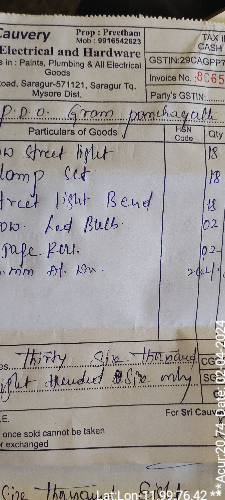 Cauvery
Prop : Preetham
Mob : 9916542623
TAX I
CASH
Electrical and Hardware
s in : Paints, Plumbing & All Electrical
Goods
GSTIN:29CAGPP7
oad, Saragur-571121, Saragur Tq.
Mysore Dist.
Invoice No. 8065
Party's GSTIN:
P.D.O. Gram panchayath
Particulars of Goods
HSN
Code
Qty
street light 18
Lamp Set 18
treet light Bend 18
Led Bulb. 02
02
Rs. Thirty Six Thousand
CG
ght Hundred Six only
SG
.E.
For Sri Cauv
once sold cannot be taken
r exchanged
Six Thousand Eight
Lat:Lon-11.99,76.42
Date 02-04-2024